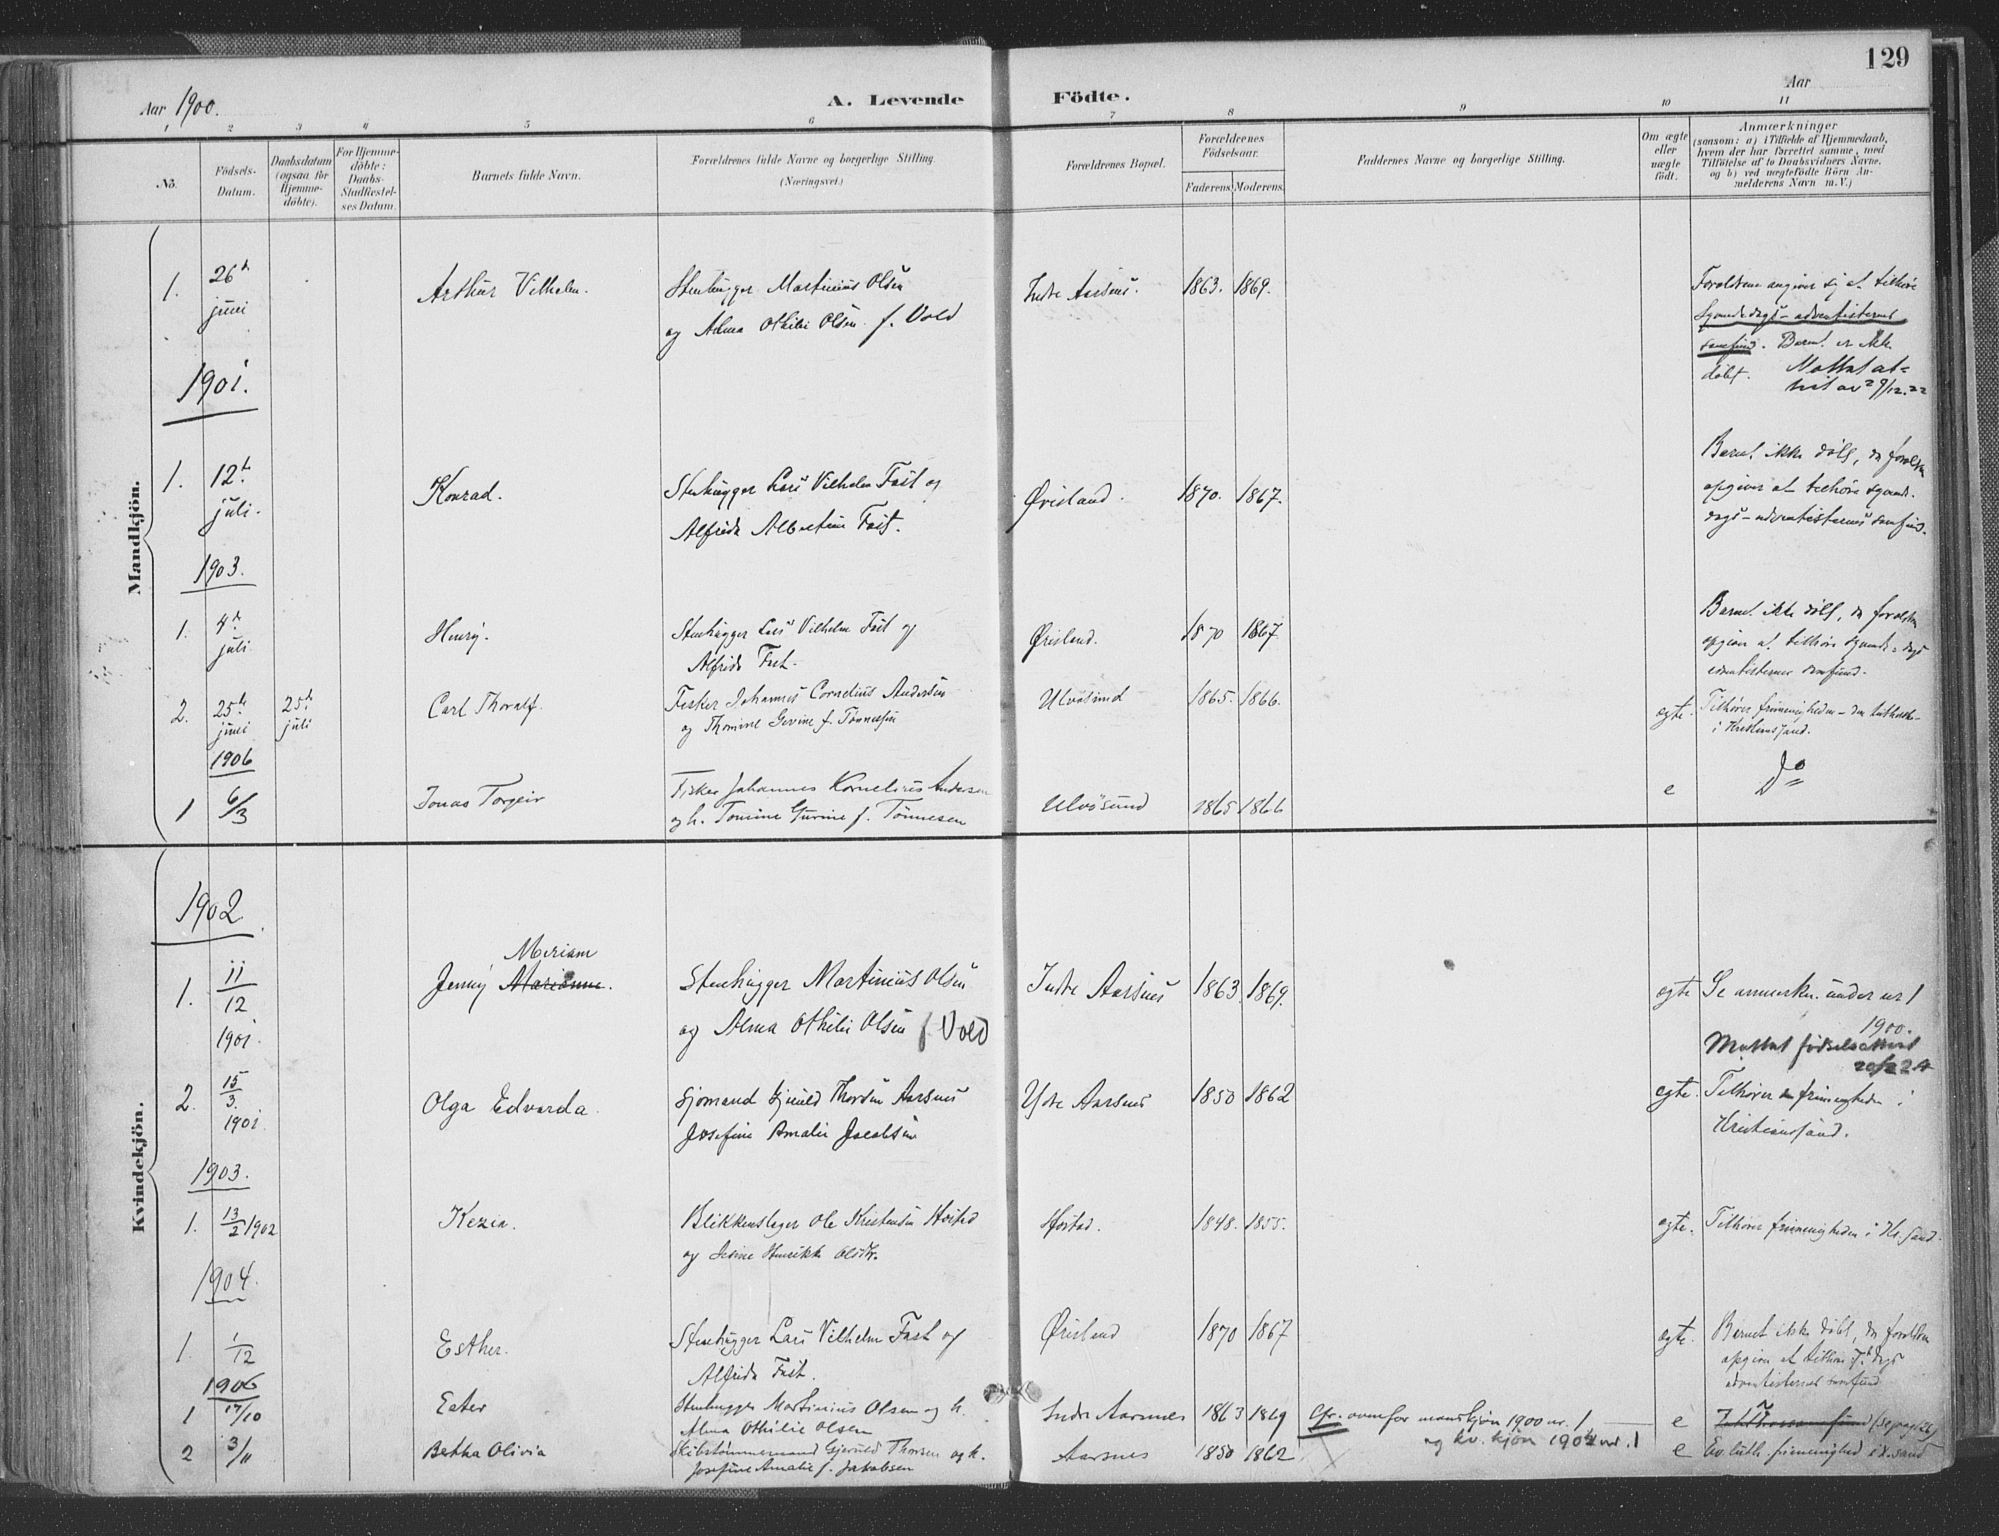 129
Aar 1900.
A. Levende Födte.
Aar
1 2 3 4 5 6 7 8 9 10 11
No.
Födsels-
Datum.
Daabsdatum
(ogsaa for
Hjemme-
döbte).
For Hjemme-
döbte:
Daabs-
Stadfæstel-
ses Datum.
Barnets fulde Navn.
Forældrenes fulde Navne og borgerlige Stilling.
(Næringsvei.)
Forældrenes Bopæl.
Forældrenes
Fødselsaar.
Faderens. Moderens.
Faddernes Navne og borgerlige Stilling.
Om ægte
eller
uægte
födt.
Anmærkninger
(saasom: a) i Tilfælde af Hjemmedaab,
hvem der har forrettet samme, med
Tilföielse af to Daabsvidners Navne.
og b) ved uægtefödte Börn An-
melderens Navn m. V.)
Mandkjön.
1. 26de
juni
Arthur Vilhelm.
Stenhugger Martinius Olsen
og Alma Othilie Olsen f. Vold
Indre Aarsnes. 1863. 1869.
Forældrene angiver sig at tilhøre
Syvendedags-adventisternes
samfund. Barnet er ikke
døbt. Mottat at-
test av 29/12.22
1901.
1. 12te
juli.
Konrad.
Stenhugger Lars Vilhelm Fast og
Alfrida Albertine Fast.
Øvisland. 1870. 1867.
Barnet ikke døbt, da foreldrene
opgiver at tilhøre syvende-
dags-adventisternes samfund.
1903.
1. 4de
juli
Henry.
Stenhugger Lars Vilhelm Fast og
Alfrida Fast.
Øvisland. 1870 1867.
Barnet ikke døbt, da foreldrene
opgiver at tilhøre syvende-dags
adventisternes samfund.
2. 25de
juni
25de
juli
Carl Thoralf.
Fisker Johannes Cornelius Andersen
og Thomine Gurine f. Tønnessen
Ulvøsund 1865. 1866.
egte. Tilhører frimenigheden - den lutherske -
i Kristianssand.
1906
1 6/3
Jonas Torgeir
Fisker Johannes Kornelius Andersen
og h. Tomine Gurine f. Tönnesen
Ulvösund 1865 1866
e Do
Kvindekjön.
1902.
1. 11/12
1901.
Miriam
Jenny Marianne.
Stenhugger Martinius Olsen
og Alma Othilie Olsen f Vold
Indre Aarsnes 1863. 1869.
egte Se anmerkn. under nr 1
1900.
Mottat fødselsattest
2. 15/3.
1901
Olga Edvarda.
Sjømand Gjeruld Thorsen Aarsnes
Josefine Amalie Jacobsen
Ydre Aarsnes 1850 1862
egte. Tilhører den frimenigheden i
Kristianssand.
1903.
1. 13/2 1902
Kezia.
Blikkenslager Ole Kristensen Høstad
og Jesine Henrikke Olsdtr.
Høstad. 1848. 1855.
egte. Tilhører frimenigheden i Kr. sand.
1904.
1. 1/12
Esther.
Stenhugger Lars Vilhelm Fast og
Alfrida Fast.
Øvisland 1870 1867
egte. Barnet ikke døbt, da foreldrene
opgiver at tilhøre 7de dags
adventisternes samfund
1906
1 17/10
Ester
Stenhugger Martinius Olsen og h.
Alma Othilie Olsen
Indre Aarsnes 1863 1869
Cfr. ovenfor manskjön 1900 nr. 1
og kv. kjön 1902 nr. 1
e
2 3/11
Betha Olivia
Skibstømmermand Gjeruld Thorsen og h.
Josefine Amalie f. Jakobsen
Aarsnes 1850 1862
e Ev. luth. frimenighed i X.sand